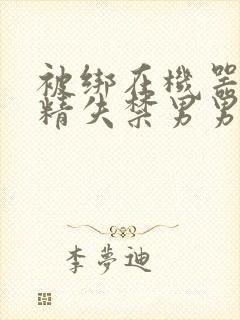 被绑在機器
精失禁男男
李夢迪